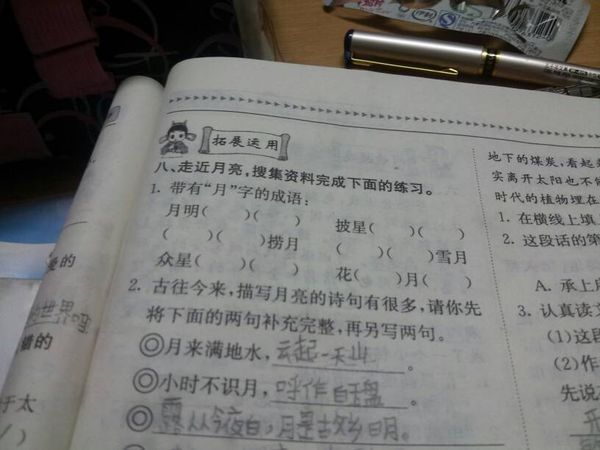 拓展运用
八、走近月亮，搜集资料完成下面的练习。
1. 带有“月”字的成语：
月明(　)(　)　　披星(　)(　)
(　)(　)捞月　　(　)(　)雪月
众星(　)(　)　　花(　)月(　)
2. 古往今来，描写月亮的诗句有很多，请你先
将下面的两句补充完整，再另写两句。
◎月来满地水，云起一天山。
◎小时不识月，呼作白玉盘。
◎露从今夜白，月是故乡明。
地下的煤炭，看起
实离开太阳也不
时代的植物埋在
1. 在横线上填
2. 这段话的第
A. 承上
3. 认真读
(1)这
(2)作
先说
的
世界
错的
于太